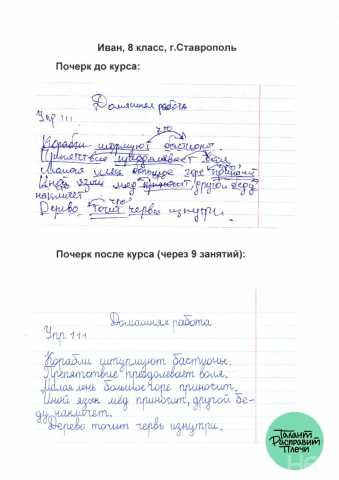 Иван, 8 класс, г.Ставрополь
Почерк до курса:
Домашняя работа
Упр 111
что
Корабли штурмуют бастионы.
Препятствие преодолевает воля.
Малая лень большое горе приносит
Иной язык мёд приносит, другой беду
накличет
что
Дерево точит червь изнутри.
Почерк после курса (через 9 занятий):
Домашняя работа
Упр 111
Корабли штурмуют бастионы.
Препятствие преодолевает воля.
Малая лень большое горе приносит.
Иной язык мёд приносит, другой бе-
ду накличет.
Дерево точит червь изнутри.
Талант
Расправит
Плечи